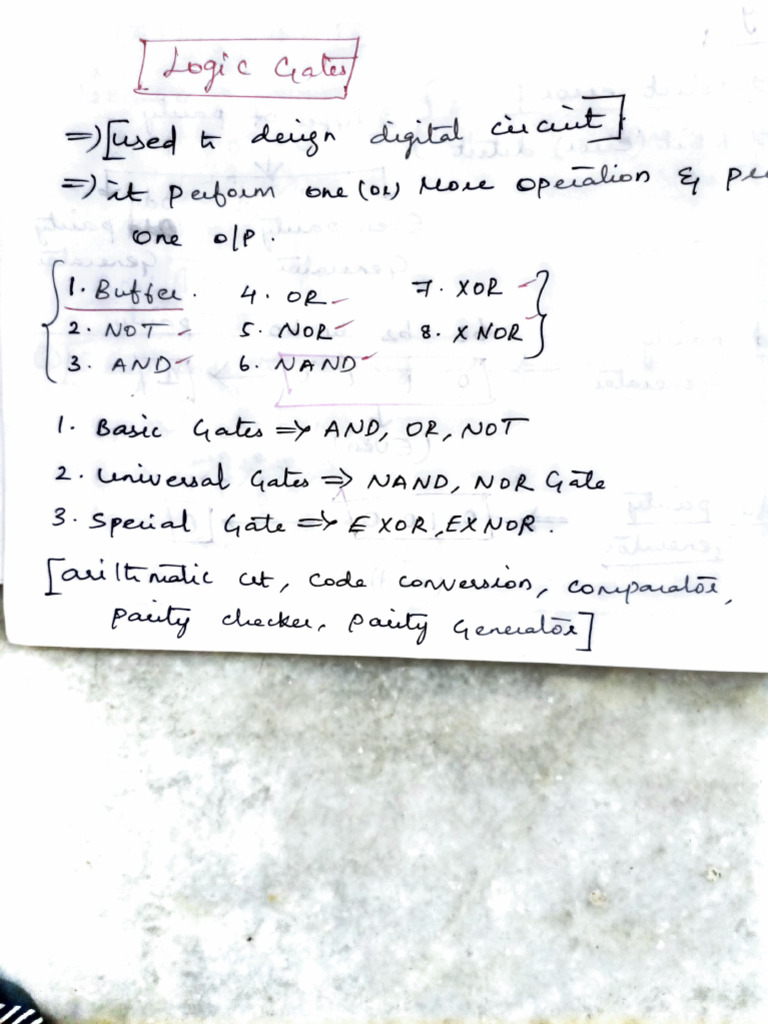 Logic Gates
=> [used to design digital circuit]
=> it perform one (or) More operation &
one o/p.
1. Buffer. 4. OR 7. XOR
2. NOT 5. NOR 8. XNOR
3. AND 6. NAND
1. Basic Gates => AND, OR, NOT
2. Universal Gates => NAND, NOR Gate
3. Special Gate => EXOR, EXNOR.
[arithmatic ckt, code conversion, comparator,
parity checker, parity Generator]